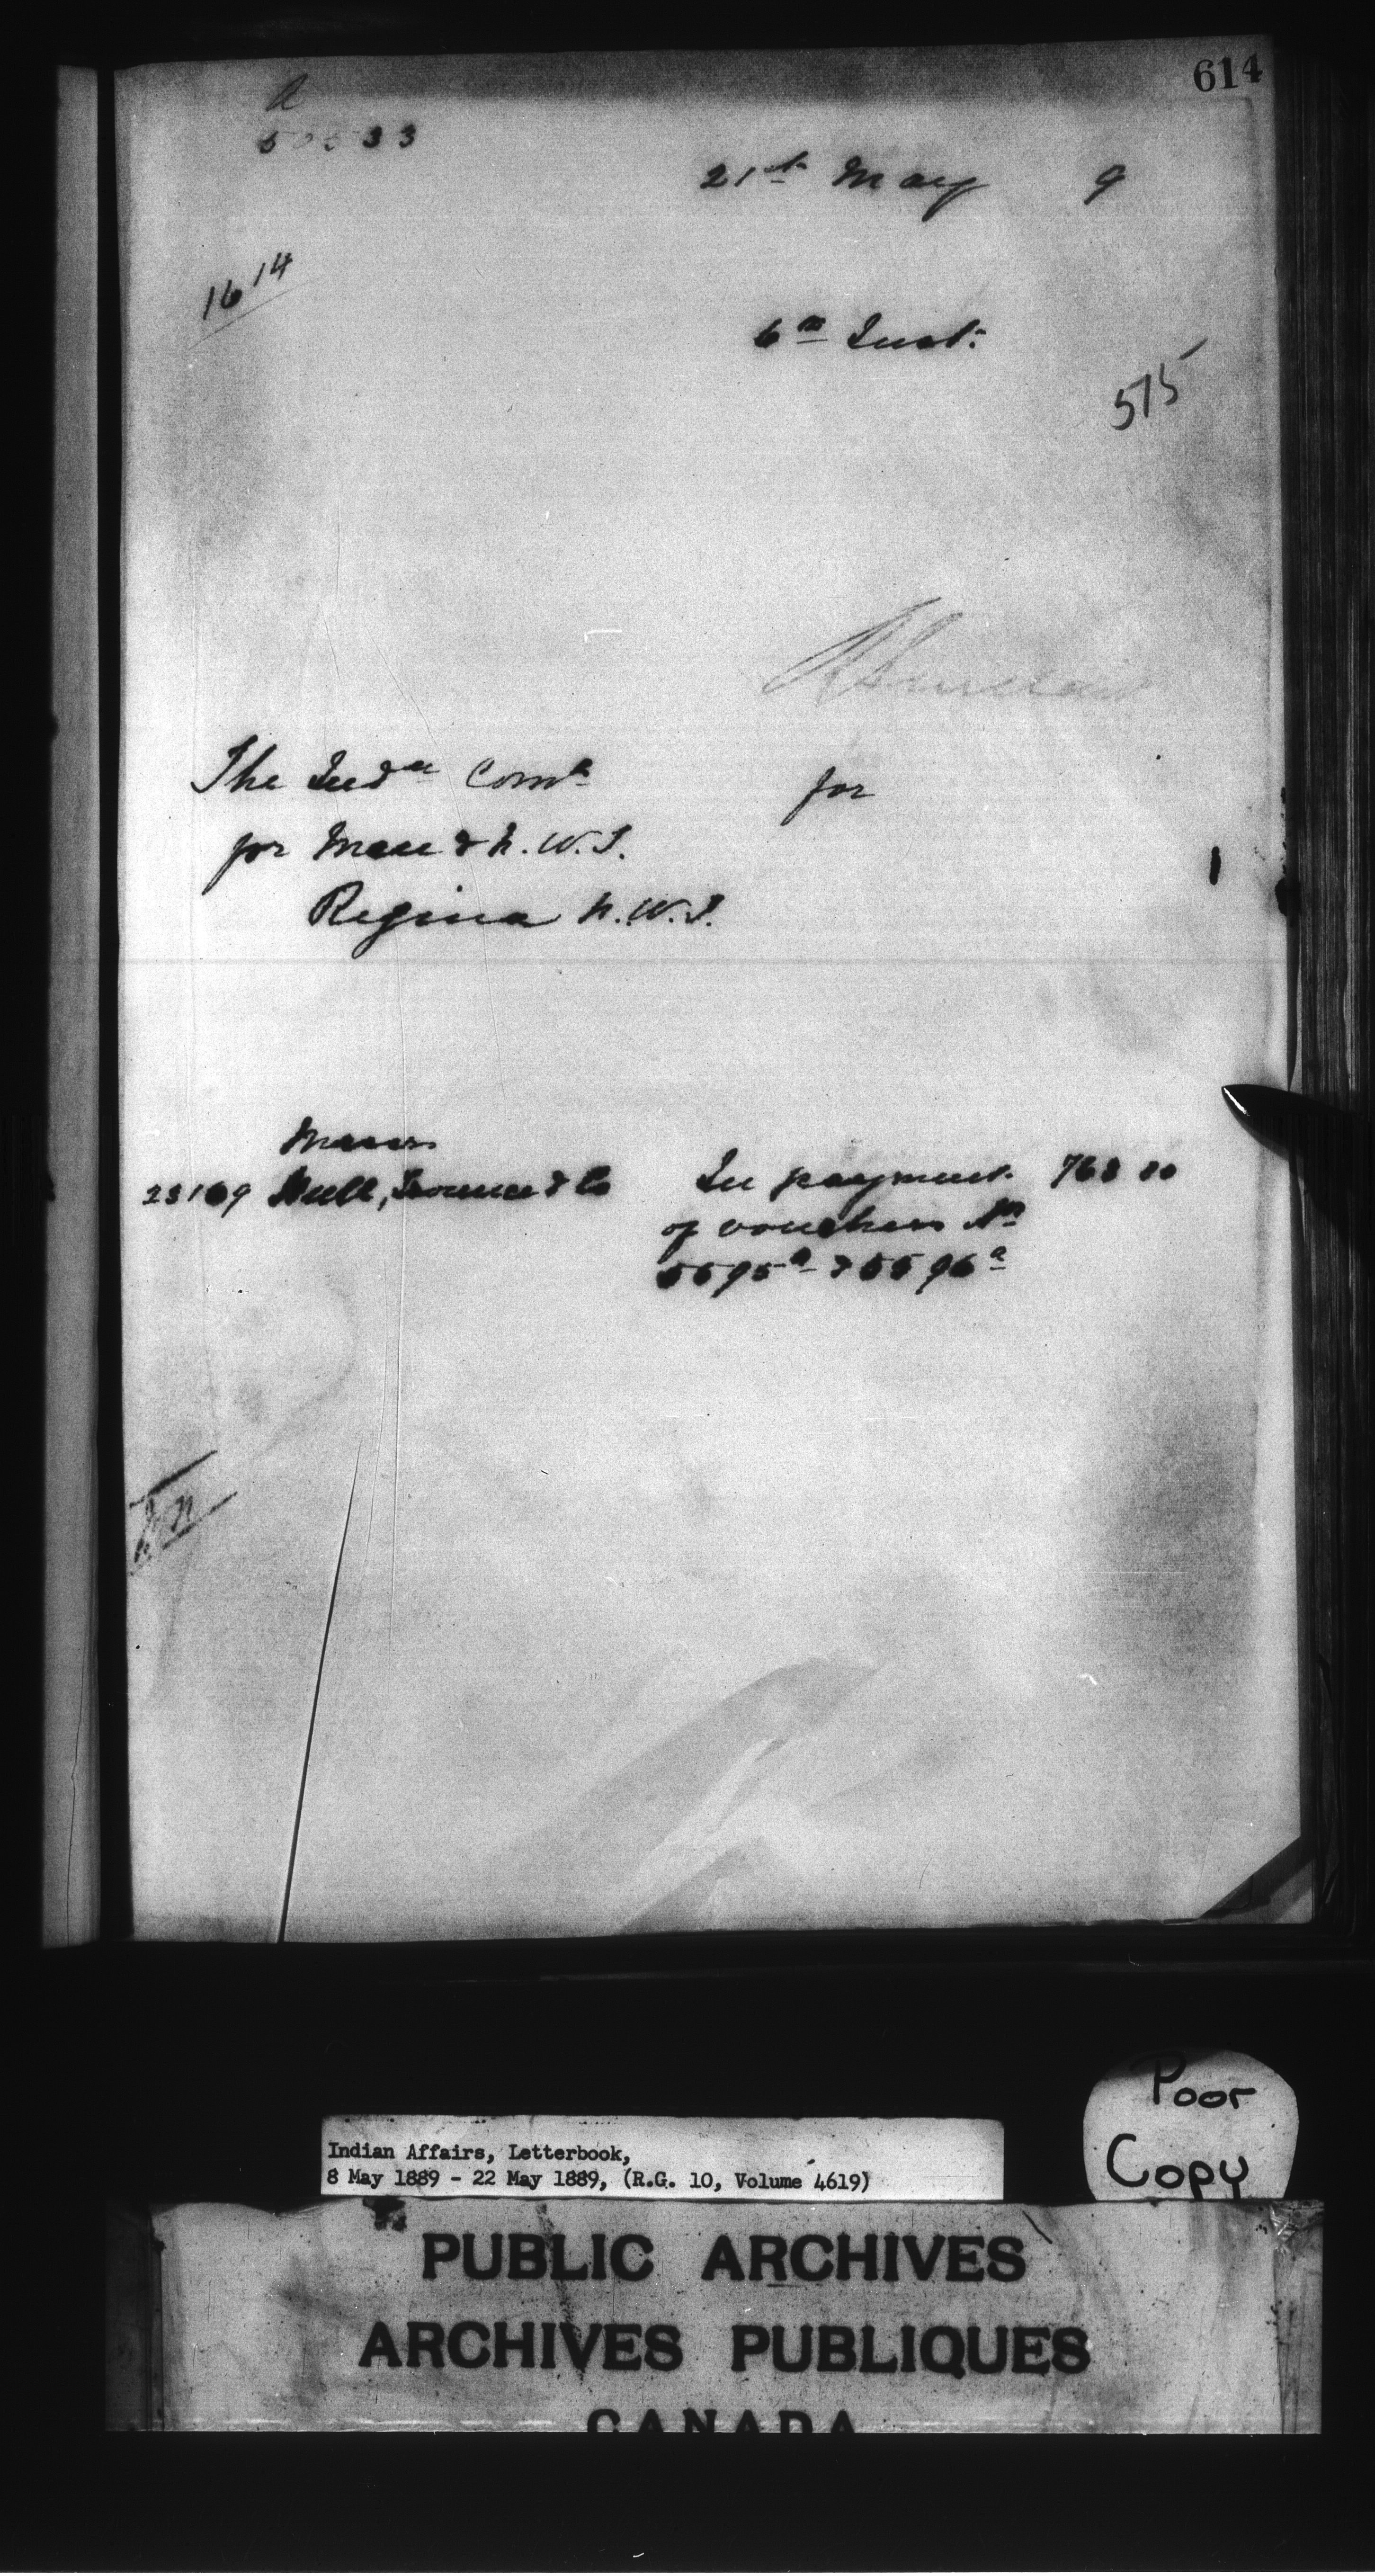 614
a
50533
21st May 9
1614
6th Inst:
515
R Sinclair
The Indn Comr for
for Man & N.W.T.
Regina N.W.T.
Messrs
23169 Hull, Trounce & Co In payment 768 80
of vouchers Nos
5595a & 5596a
Poor
Copy
Indian Affairs, Letterbook,
8 May 1889 - 22 May 1889, (R.G. 10, Volume 4619)
PUBLIC ARCHIVES
ARCHIVES PUBLIQUES
CANADA